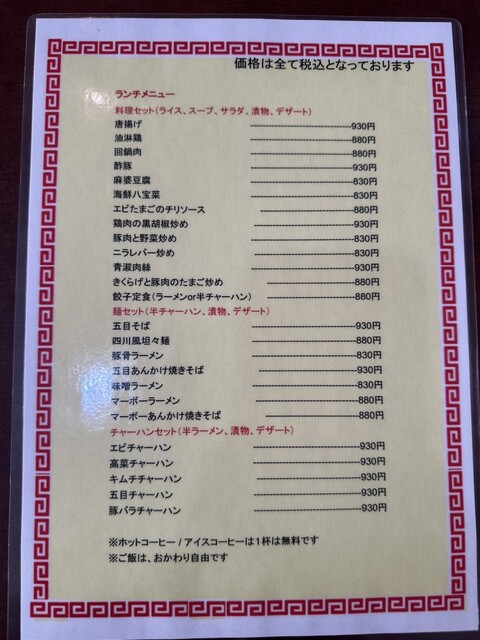 価格は全て税込となっております
ランチメニュー
料理セット(ライス、スープ、サラダ、漬物、デザート)
唐揚げ ---------------------------930円
油淋鶏 ---------------------------880円
回鍋肉 ---------------------------880円
酢豚 ---------------------------930円
麻婆豆腐 ---------------------------830円
海鮮八宝菜 ---------------------------830円
エビたまごのチリソース ------------------------880円
鶏肉の黒胡椒炒め --------------------------930円
豚肉と野菜炒め --------------------------830円
ニラレバー炒め --------------------------830円
青淑肉絲 ---------------------------930円
きくらげと豚肉のたまご炒め ----------------------880円
餃子定食(ラーメンor半チャーハン) ----------------------880円
麺セット(半チャーハン、漬物、デザート)
五目そば ---------------------------930円
四川風坦々麺 ---------------------------880円
豚骨ラーメン ---------------------------830円
五目あんかけ焼きそば --------------------------930円
味噌ラーメン ---------------------------830円
マーボーラーメン --------------------------880円
マーボーあんかけ焼きそば ------------------------880円
チャーハンセット(半ラーメン、漬物、デザート)
エビチャーハン ----------------------------930円
高菜チャーハン ----------------------------930円
キムチチャーハン ---------------------------930円
五目チャーハン ----------------------------930円
豚バラチャーハン ----------------------------930円
※ホットコーヒー/アイスコーヒーは1杯は無料です
※ご飯は、おかわり自由です